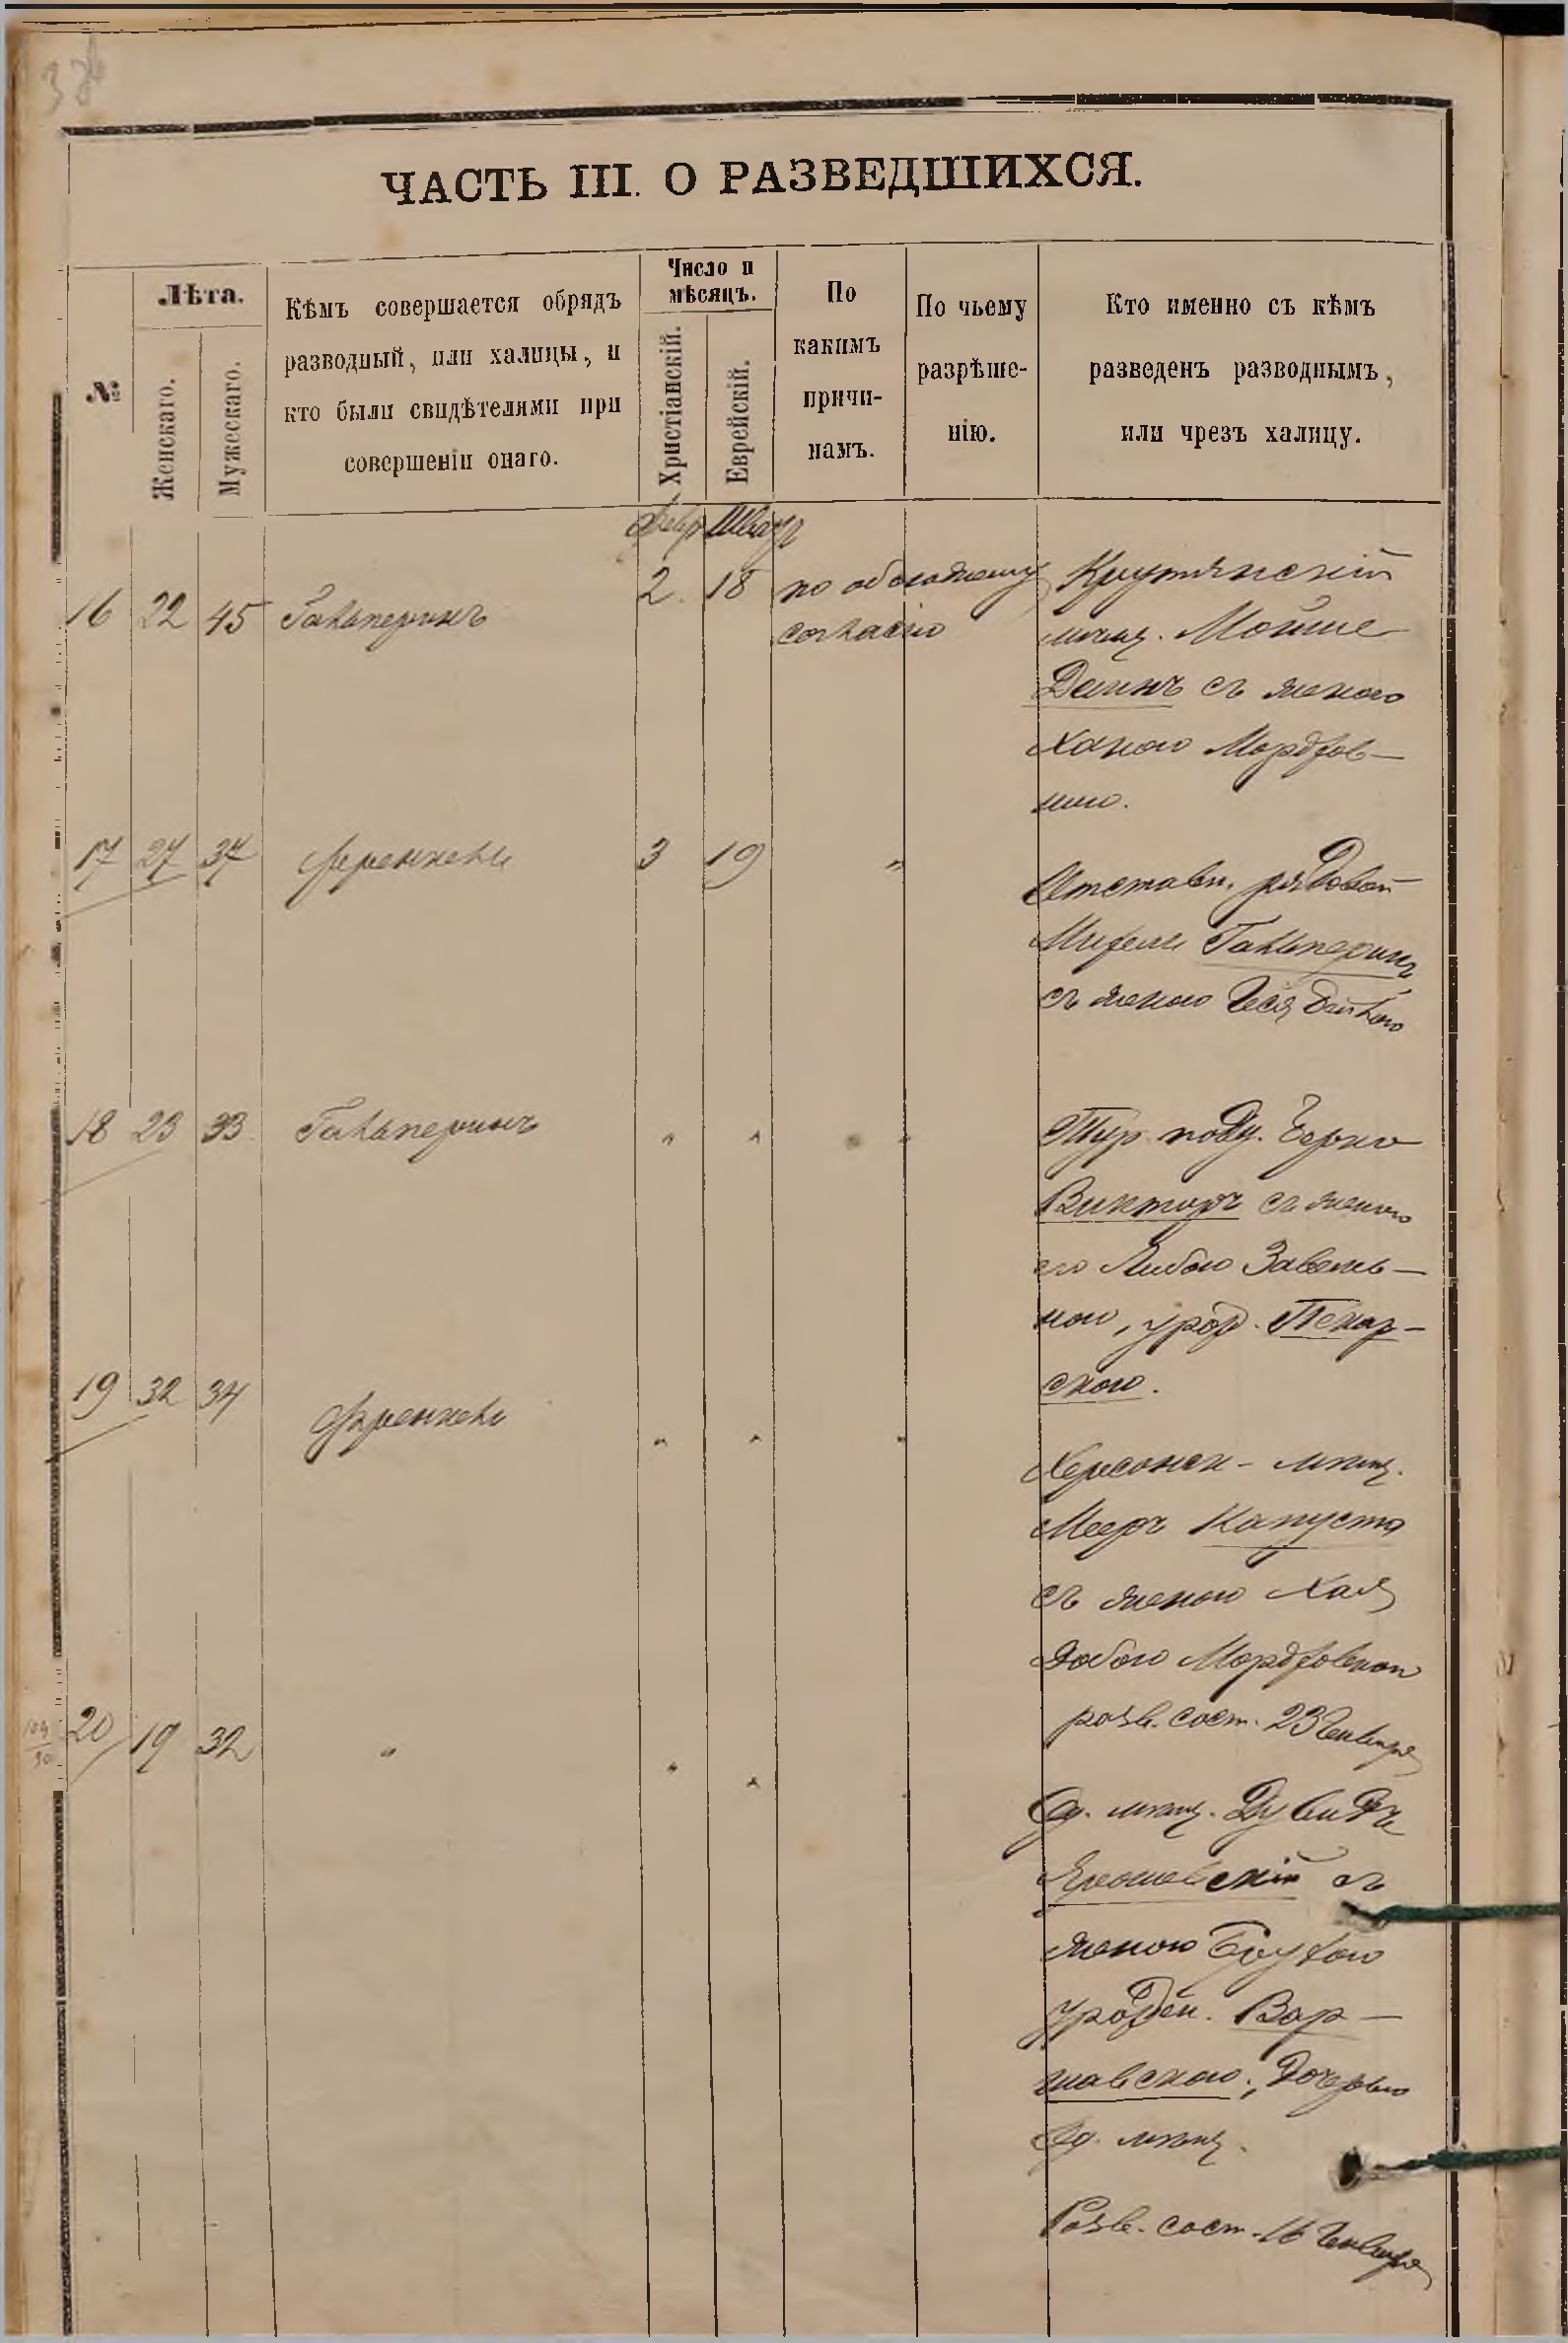 ЧАСТЬ III. О РАЗВЕДШИХСЯ.
№
Лѣта.
Женскаго.
Мужескаго.
Кѣмъ совершается обрядъ
разводный, или халицы, и
кто были свидѣтелями при
совершеніи онаго.
Число и
мѣсяцъ.
Христіанскій.
Еврейскій.
По
какимъ
причи-
намъ.
По чьему
разрѣше-
нію.
Кто именно съ кѣмъ
разведенъ разводнымъ,
или чрезъ халицу.
Февр. Шват
16 22 45 Гальперинъ 2. 18 по обоюдному
согласію
Крутянскій
мѣщ. Мойше
съ женою
Ханою Мордхов-
ною.
17 27 37 Френкель 3 19 "
Отставн. рядовой
Михель Гальперинъ
съ женою
18 23 33 Гальперинъ " " "
Тур. подд. Берко
Винтеръ съ женою
его Либою Завель-
ною, урож. Пекар-
скою.
19 32 34 Френкель " " "
Херсонск- мѣщ.
Мееръ Капуста
съ женою Хая
Добою Мордховною
разв. сост. 23 Января
20 19 32 " " "
Од. мѣщ. Дувидъ
Ярошевскій съ
женою Брухою
урожден. Вар-
шавскою, дочерью
Од. мѣщ.
Разв. сост. 16 Января